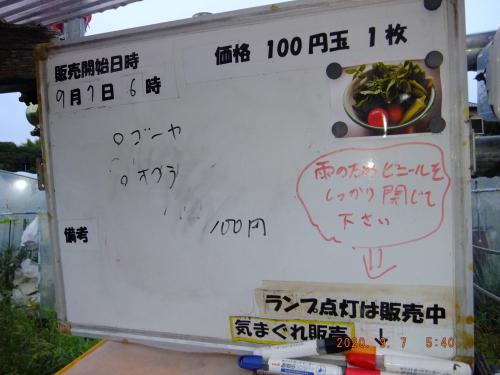 価格 100円玉 1枚
販売開始日時
9月7日 6時
○ゴーヤ
○オクラ
100円
備考
雨のためビニールを
しっかり閉じて
下さい
ランプ点灯は販売中
気まぐれ販売 !
2020. 9. 7 5:40